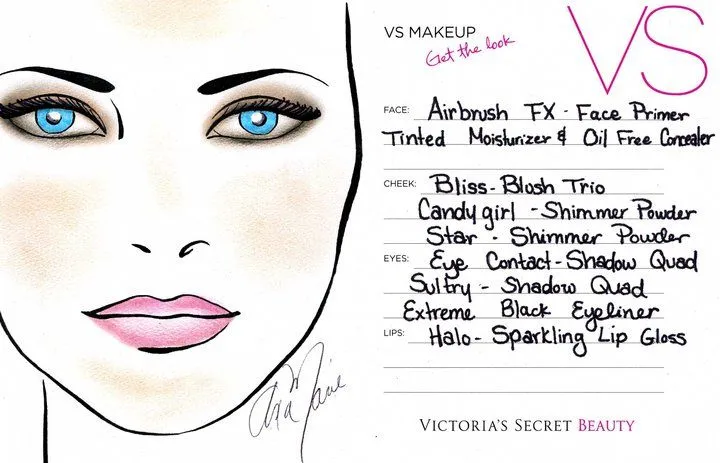 VS MAKEUP
Get the look
VS
FACE: Airbrush FX - Face Primer
Tinted Moisturizer & Oil Free Concealer
CHEEK: Bliss - Blush Trio
Candy girl - Shimmer Powder
Star - Shimmer Powder
EYES: Eye Contact - Shadow Quad
Sultry - Shadow Quad
Extreme Black Eyeliner
LIPS: Halo - Sparkling Lip Gloss
VICTORIA'S SECRET BEAUTY